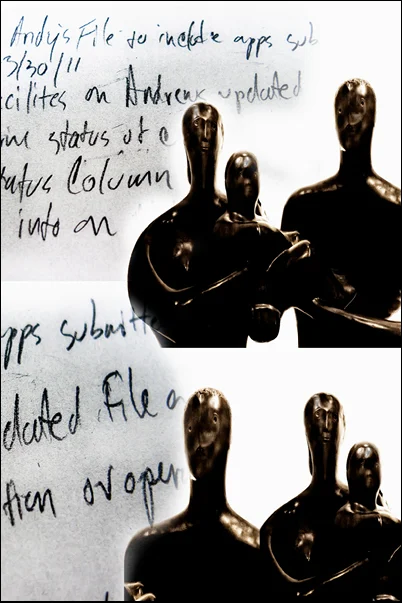 Andy's File to include apps sub
3/30/11
cilites on Andrews updated
status of
atus Column
info on
apps submitte
dated File a
tion or open